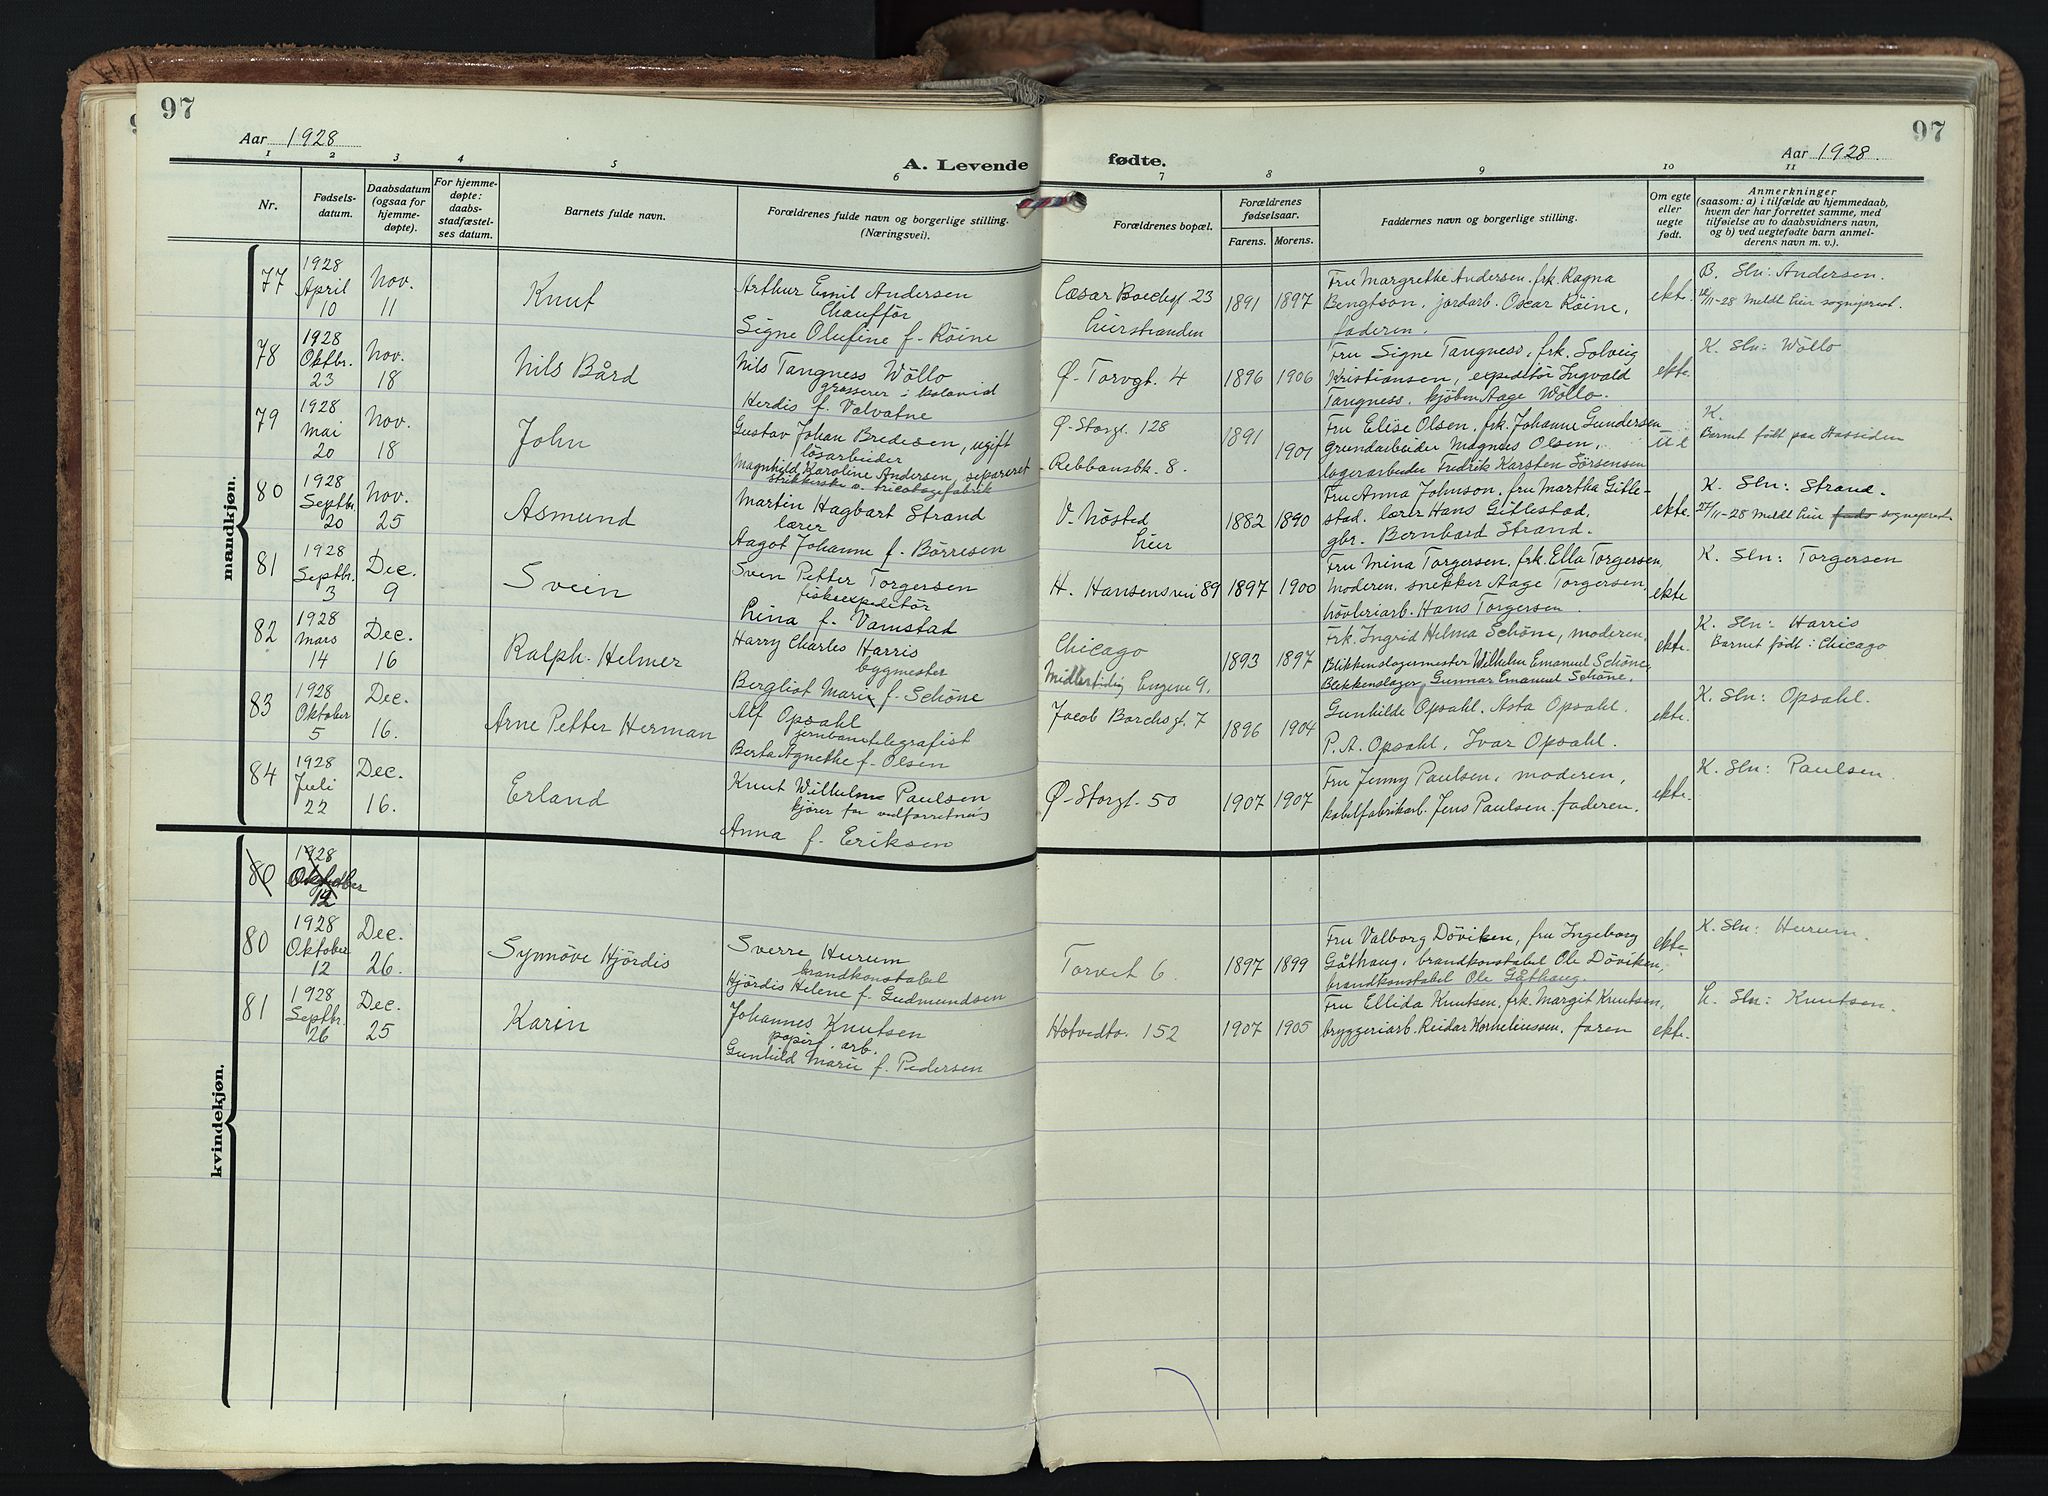 97
97
Aar 1928
Aar 1928
A. Levende fødte.
1 2 3 4 5 6 7 8 9 10 11
Nr.
Fødsels-
datum.
Daabsdatum
(ogsaa for
hjemme-
døpte).
For hjemme-
døpte:
daabs-
stadfæstel-
ses datum.
Barnets fulde navn.
Forældrenes fulde navn og borgerlige stilling.
(Næringsvei).
Forældrenes bopæl.
Forældrenes
fødselsaar.
Farens. Morens.
Faddernes navn og borgerlige stilling.
Om egte
eller
uegte
født.
Anmerkninger
(saasom: a) i tilfælde av hjemmedaab,
hvem der har forrettet samme, med
tilføielse av to daabsvidners navn,
og b) ved uegtefødte barn anmel-
derens navn m. v.).
mandkjøn.
77
1928
April
10
Nov.
11
Knut
Arthur Emil Andersen
Chauffør
Signe Olufine f. Röine
Cæsar Boecksgt. 23
Lierstranden
1891 1897
Fru Margrethe Andersen, frk. Ragna
Bengtson, jordarb. Oscar Röine,
faderen.
ekte.
B. Sln: Andersen.
/11-28 Meldt Lier sogneprest.
78
1928
Oktbr.
23
Nov.
18
Nils Bård
Nils Tangness Wöllo
grosserer i kolonial
Herdis f. Valvatne
Ø. Torvgt. 4
1896 1906
Fru Signe Tangness, frk. Solveig
Kristiansen, expeditör Ingvald
Tangness, kjøbm Aage Wöllo.
ekte.
K. Sln: Wöllo
79
1928
Mai
20
Nov.
18
John
Gustav Johan Bredesen, ugift
løsarbeider
Magnhild Karoline Andersen, separeret
strikkerske v. tricotagefabrik
Ø. Storgt. 128
Rebbansbk. 8.
1891
1901
Fru Elise Olsen, frk. Johanne Gundersen
grundarbeider Magnus Olsen,
lagerarbeider Fredrik Karsten Sörensen
K.
Barnet født paa Hassiden
80
1928
Septbr.
20
Nov.
25
Asmund
Martin Hagbart Strand
lærer
Aagot Johanne f. Börresen
V. Nøsted
Lier
1882 1890
Fru Anna Johnson, fru Martha Gille-
stad, lærer Hans Gillestad,
gbr. Bernhard Strand.
ekte.
K. Sln: Strand.
27/11-28 Meldt Lier sogneprest.
81
1928
Septbr.
3
Dec.
9
Svein
Sven Petter Torgersen
fiskeexpeditör
Lina f. Vamstad
H. Hansensvei 89
1897 1900
Fru Mina Torgersen, frk. Ella Torgersen,
moderen, snekker Aage Torgersen,
hövleriarb. Hans Torgersen.
ekte
K. Sln: Torgersen
82
1928
Mars
14
Dec.
16
Ralph Helmer
Harry Charles Harris
bygmester
Bergliot Marie f. Schöne
Chicago
Midlertidig Engene 9.
1893 1897
Frk. Ingrid Helma Schöne, moderen,
Blikkenslagermester Wilhelm Emanuel Schöne,
Blikkenslager Gunnar Emanuel Schöne.
ekte.
K. Sln: Harris
Barnet født i Chicago
83
1928
Oktober
5
Dec.
16.
Arne Petter Herman
Alf Opsahl
jernbanetelegrafist
Berta Agnethe f. Olsen
Jacob Borchsgt. 7
1896 1904
Gunhilde Opsahl. Asta Opsahl.
P. A. Opsahl, Ivar Opsahl.
ekte.
K. Sln: Opsahl.
84
1928
Juli
22
Dec.
16.
Erland
Knut Wilhelm Paulsen
kjører for vedforretning
Anna f. Eriksen
Ø. Storgt. 50
1907 1907
Fru Jenny Paulsen, moderen,
kabelfabrikarb. Jens Paulsen. faderen.
ekte.
K. Sln: Paulsen.
kvindekjøn.
80
1928
Oktober
12
80
1928
Oktober
12
Dec.
26.
Synnöve Hjördis
Sverre Hurum
brandkonstabel
Hjördis Helene f. Gudmundsen
Torvet 6.
1897 1899
Fru Valborg Döviken, fru Ingeborg
Gåthaug, brandkonstabel Ole Döviken,
brandkonstabel Ole Gåthaug.
ekte.
K. Sln: Hurum.
81
1928
Septbr.
26
Dec.
25
Karin
Johannes Knutsen
papirf. arb.
Gunhild Marie f. Pedersen
Hotvedto. 152
1907 1905
Fru Ellida Knutsen, frk. Margit Knutsen,
bryggeriarb. Reidar Korneliussen, faren
ekte.
L. Sln: Knutsen.